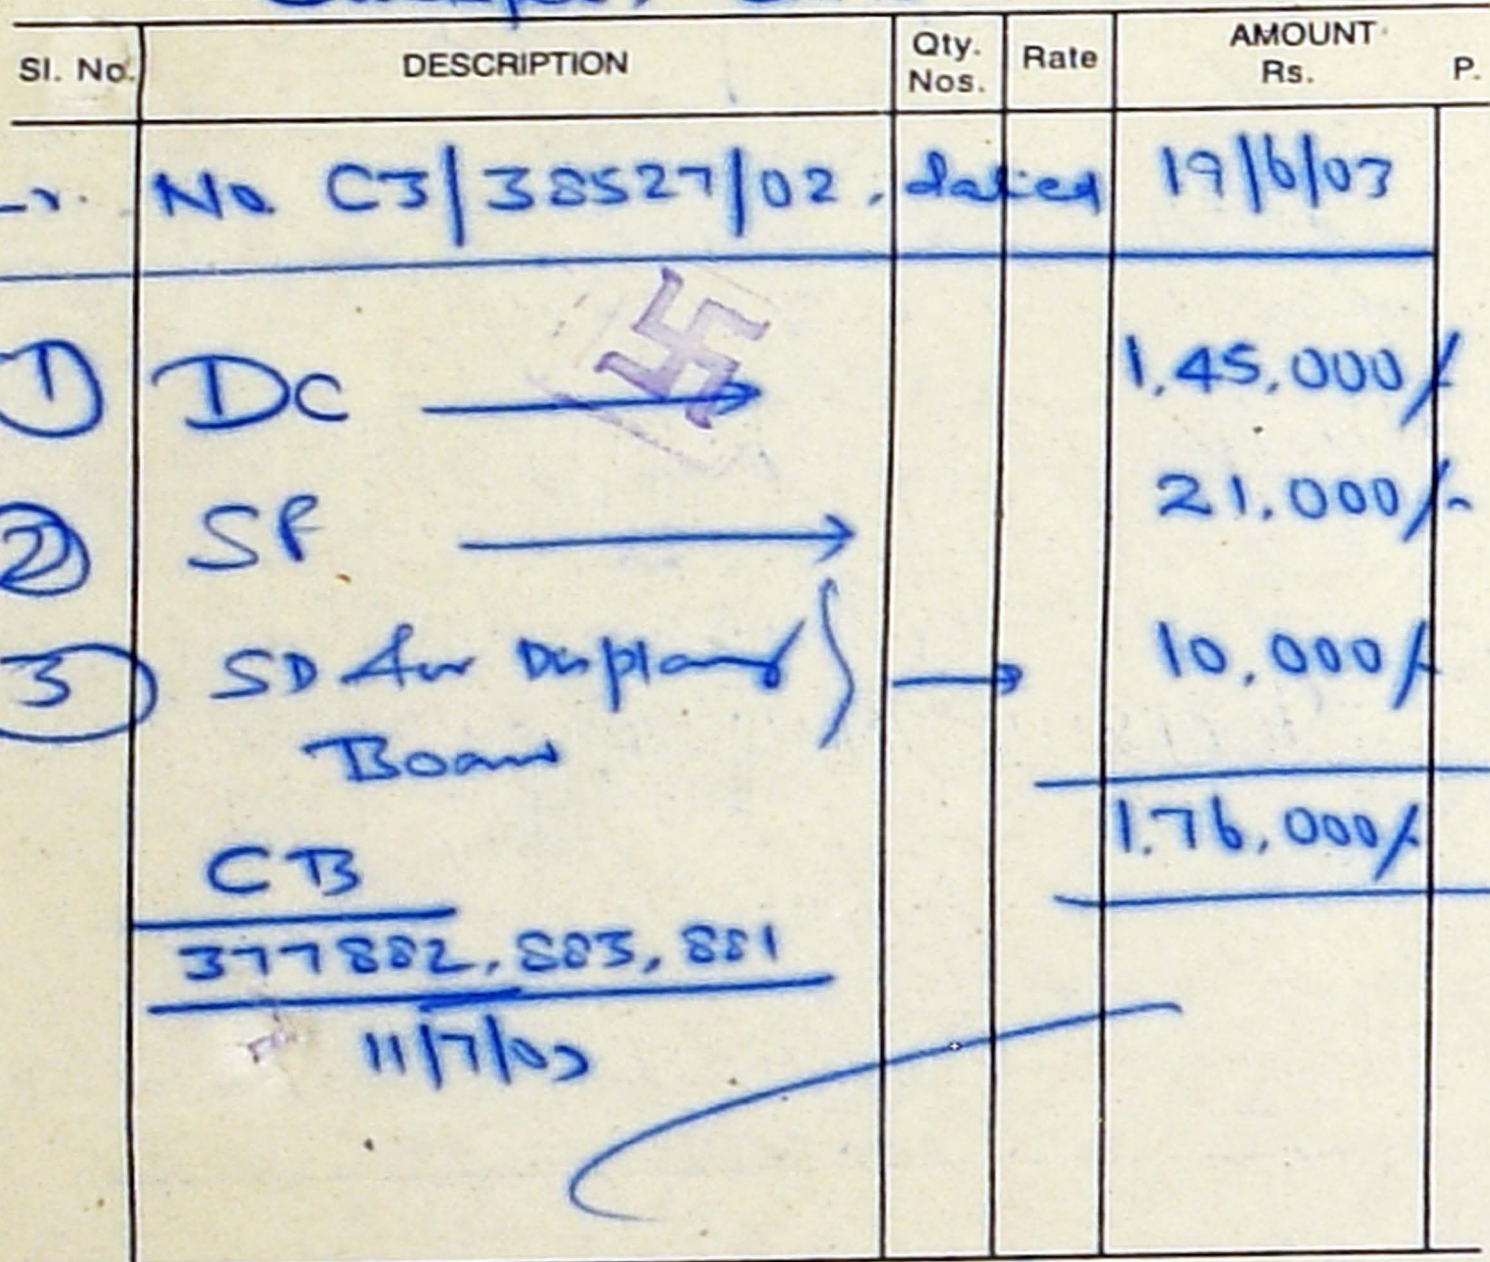 Sl. No. DESCRIPTION Qty. Nos. Rate AMOUNT Rs. P.
No. C3/38527/02, dated 19/6/03
1 DC → 1,45,000/-
2 SF → 21,000/-
3 SD for Display } → 10,000/-
Board
1,76,000/-
CB
377882, 883, 881
11/7/03